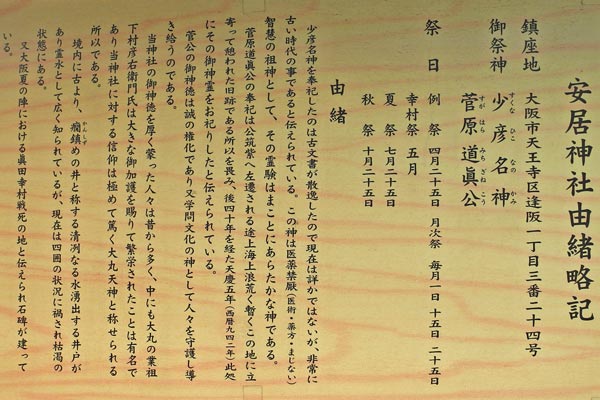 安居神社由緒略記
鎮座地 大阪市天王寺区逢阪一丁目三番二十四号
御祭神 少彦名神
すくなひこなのかみ
菅原道眞公
すがはらみちざねこう
祭日 例祭 四月二十五日 月次祭 毎月一日 十五日 二十五日
幸村祭 五月
夏祭 七月二十五日
秋祭 十月二十五日
由緒
少彦名神を奉祀したのは古文書が散逸したので現在は詳かではないが、非常に
古い時代の事であると伝えられている。この神は医薬禁厭(医術・薬方・まじない)
智慧の祖神として、その霊験はまことにあらたかな神である。
菅原道眞公の奉祀は公筑紫へ左遷される途上海上浪荒く暫くこの地に立
寄って憩われた旧跡である所以を畏み、後四十年を経た天慶五年(西暦九四二年)此処
にその御神霊をお祀りしたと伝えられている。
菅公の御神徳は誠の権化であり又学問文化の神として人々を守護し導
き給うのである。
当神社の御神徳を厚く蒙った人々は昔から多く、中にも大丸の業祖
下村彦右衛門氏は大きな御加護を賜りて繁栄されたことは有名で
あり当神社に対する信仰は極めて篤く大丸天神と称せられる
所以である。
境内に古より、癇鎮めの井と称する清冽なる水湧出する井戸が
かんしずめ
あり霊水として広く知られているが、現在は四囲の状況に禍され枯渇の
状態にある。
又大阪夏の陣における眞田幸村戦死の地と伝えられ石碑が建って
いる。